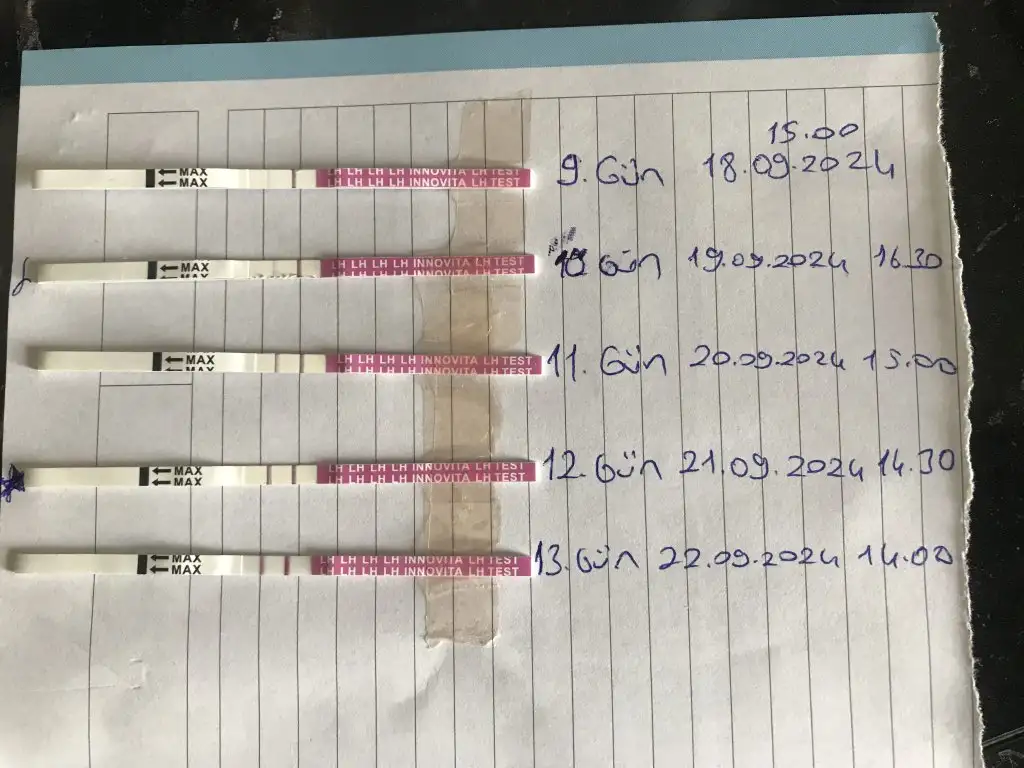 15.00
MAX
MAX
LH LH LH LH INNOVITA LH TEST
LH LH LH LH INNOVITA LH TEST
9. Gün 18.09.2024
MAX
MAX
LH LH LH LH INNOVITA LH TEST
LH LH LH LH INNOVITA LH TEST
10 Gün 19.09.2024 16.30
MAX
MAX
LH LH LH LH INNOVITA LH TEST
LH LH LH LH INNOVITA LH TEST
11. Gün 20.09.2024 15.00
MAX
MAX
LH LH LH LH INNOVITA LH TEST
LH LH LH LH INNOVITA LH TEST
12. Gün 21.09.2024 14.30
MAX
MAX
LH LH LH LH INNOVITA LH TEST
LH LH LH LH INNOVITA LH TEST
13. Gün 22.09.2024 14.00